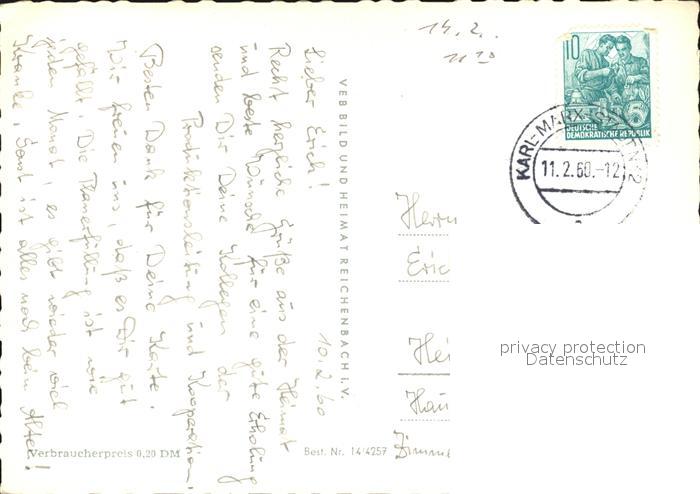 10.2.60
Lieber Erich!
Recht herzliche Grüße aus der Heimat
und beste Wünsche für eine gute Erholung
senden Dir Deine Kollegen der
Produktionsleitung und Kooperation.
Besten Dank für Deine Karte.
Wir freuen uns, daß es Dir gut
gefällt. Die Planerfüllung ist wie
jeden Monat, es gibt wieder viel
Kranke. Sonst ist alles noch beim Alten!
VEB BILD UND HEIMAT REICHENBACH I.V.
Verbraucherpreis 0,20 DM
Best. Nr. 14/4257
14.2.
11 20
10
5
DEUTSCHE
DEMOKRATISCHE REPUBLIK
KARL-MARX-
11.2.60.-12
Herrn
Eric
Hei
Hau
Zimm
privacy protection
Datenschutz